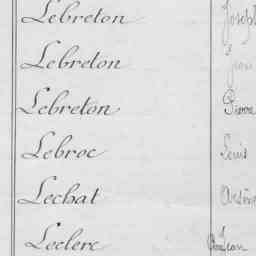 Lebreton Joseph
Lebreton Jean
Lebreton Pierre
Lebroc Louis
Lechat Arsène
Leclerc Jean